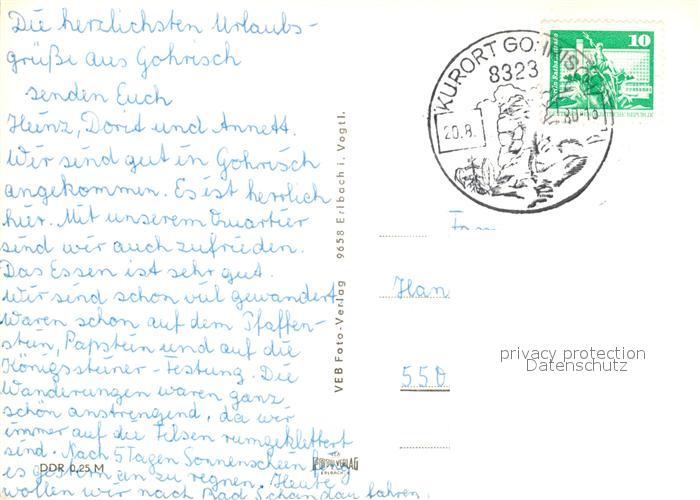 Die herzlichsten Urlaubs-
grüße aus Gohrisch
senden Euch
Heinz, Dorit und Annett.
Wir sind gut in Gohrisch
angekommen. Es ist herrlich
hier. Mit unserem Quartier
sind wir auch zufrieden.
Das Essen ist sehr gut.
Wir sind schon viel gewandert
Waren schon auf dem Pfaffen-
stein, Papstein und auf die
Königssteiner-Festung. Die
Wanderungen waren ganz
schön anstrengend, da wir
immer auf die Felsen rumgeklettert
sind. Nach 5 Tagen Sonnenschein fing
es gestern an zu regnen. Heute
wollen wir nach Bad Schandau fahren.
DDR 0,25 M
VEB Foto-Verlag 9658 Erlbach i. Vogtl.
FOTO-VERLAG
ERLBACH
KURORT GOHRISCH
8323
20.8.
10
Han
550
privacy protection
Datenschutz